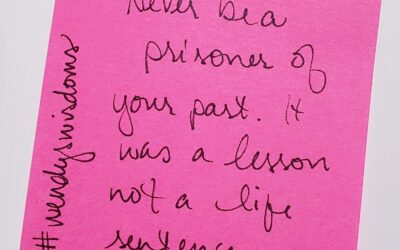 Never be a
prisoner of
your past. It
was a lesson
not a life
sentence
#wendyswisdoms